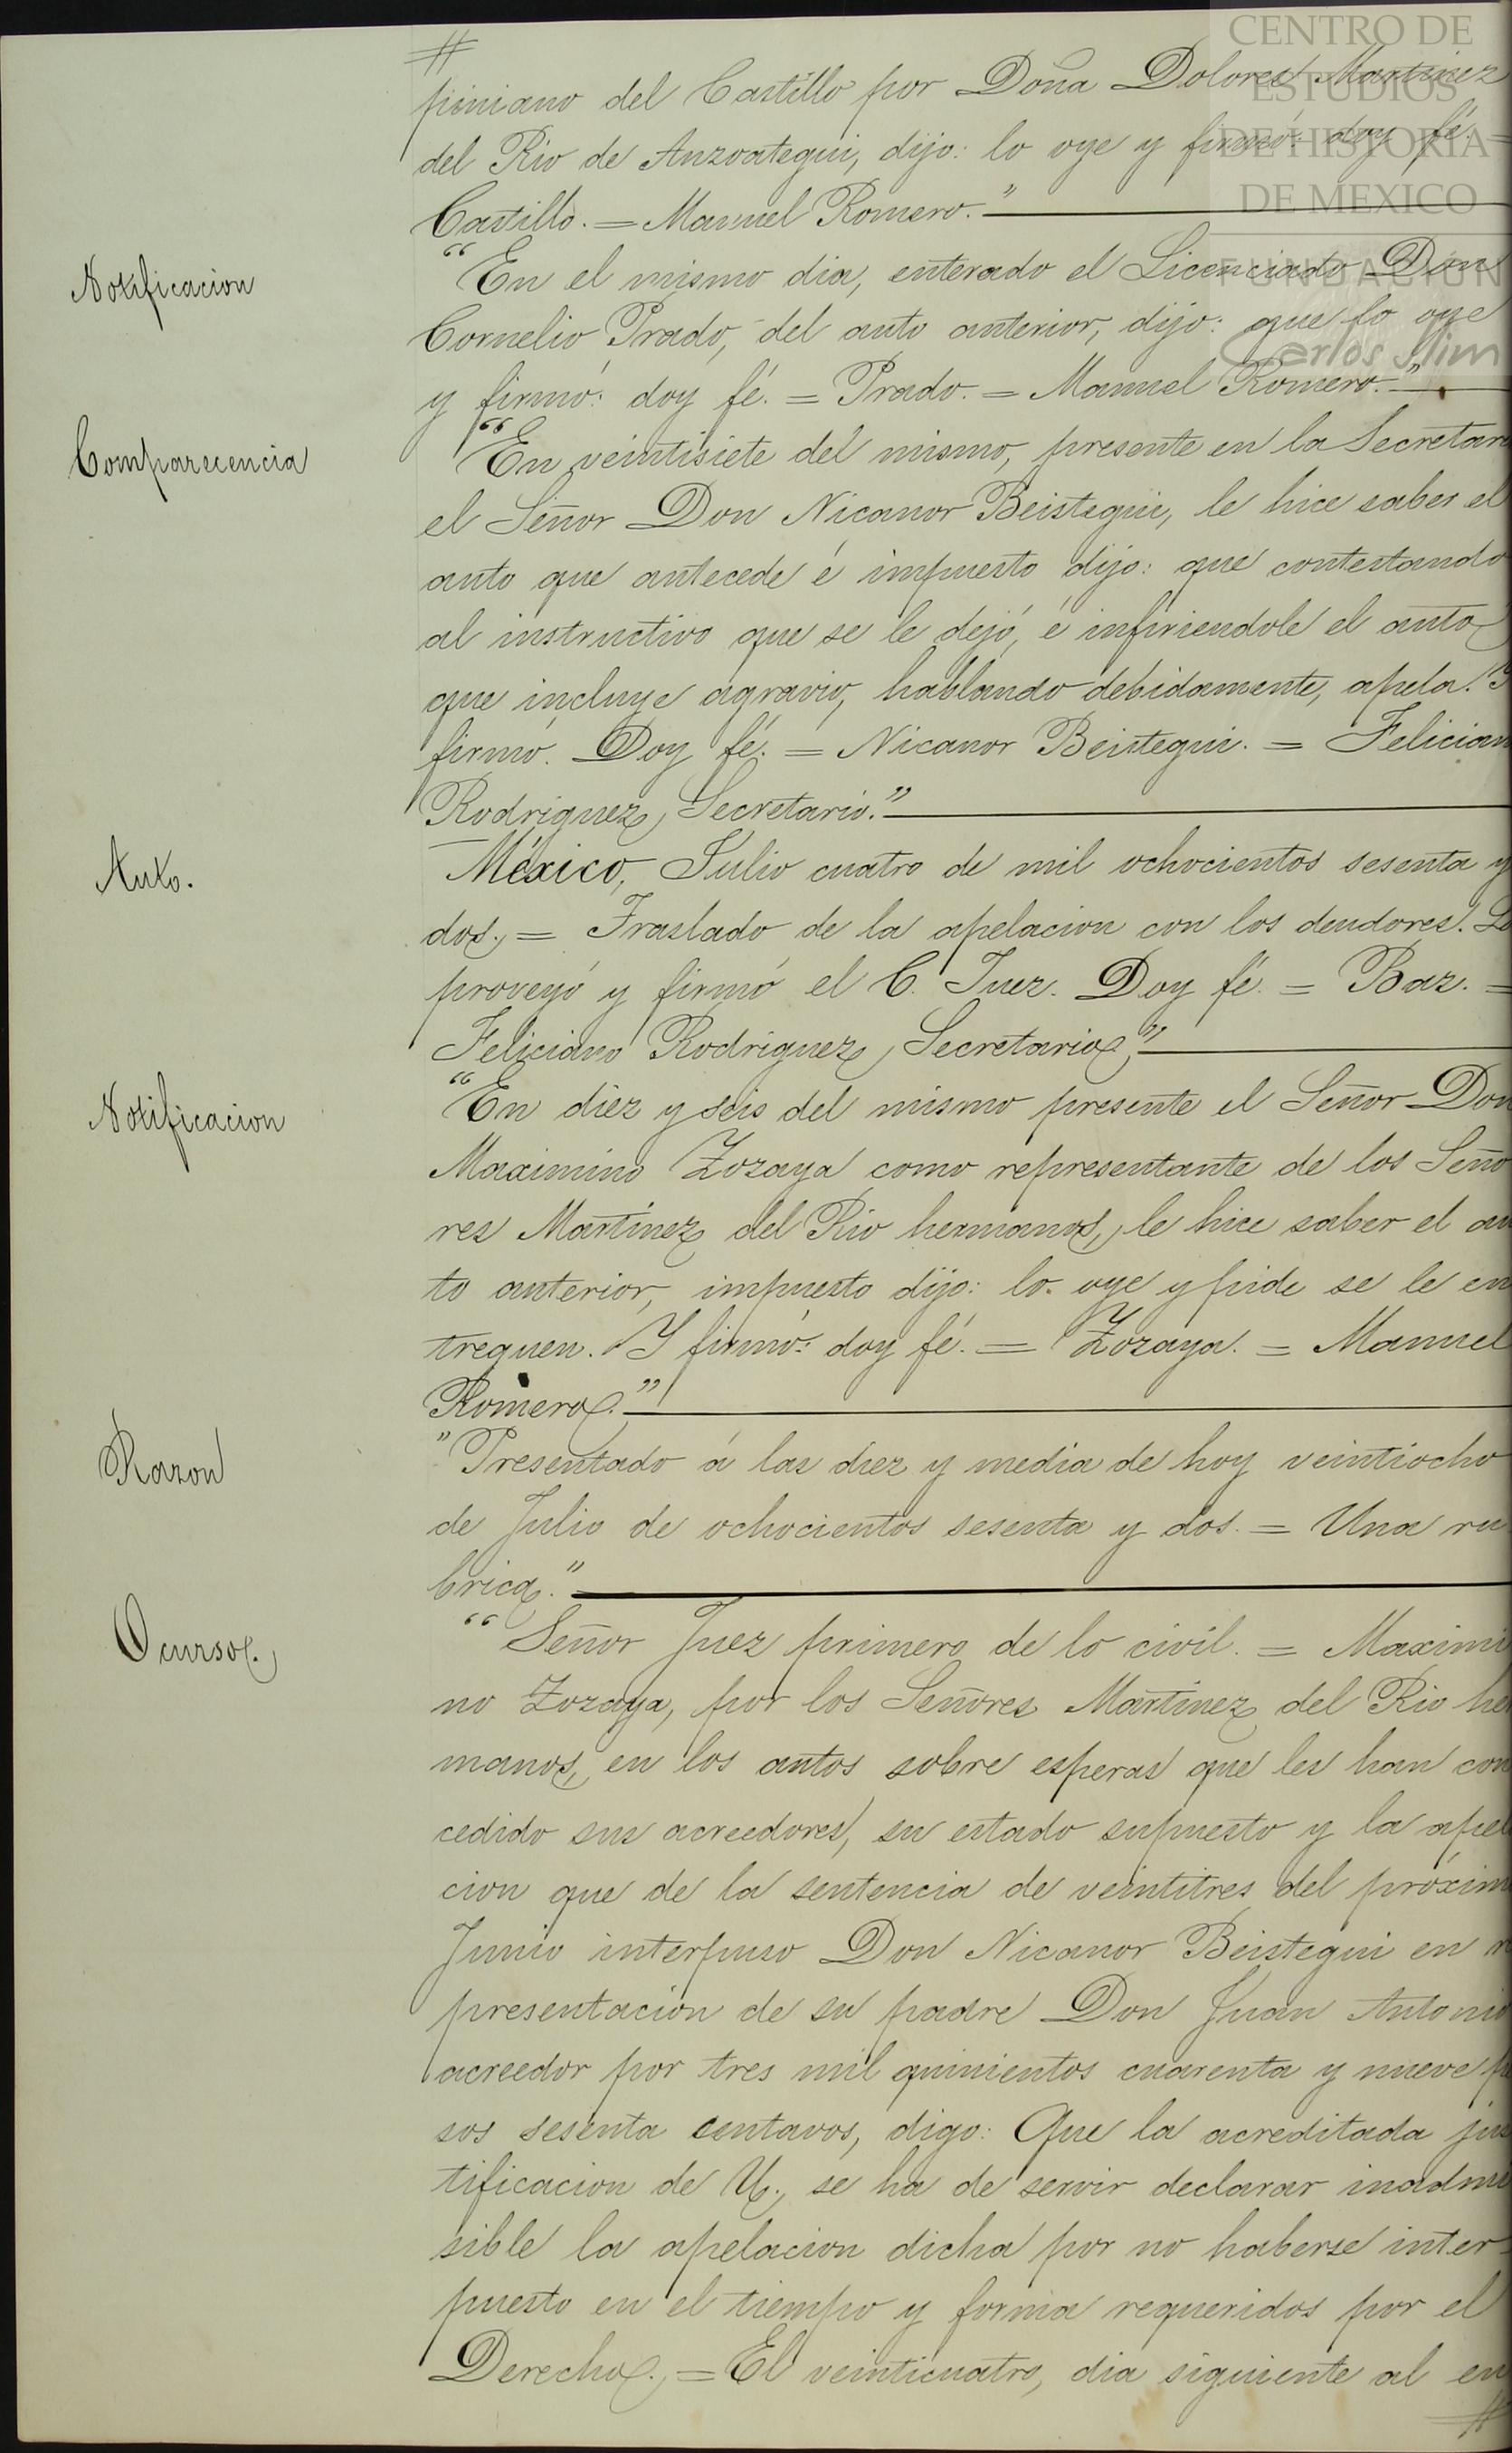 #
piniano del Castillo por Doña Dolores Martinez
del Rio de Anzoategui, dijo: lo oye y firmó: doy fé. =
Castillo. = Manuel Romero."
Notificacion
"En el mismo dia, enterado el Licenciado Don
Cornelio Prado, del auto anterior, dijo: que lo oye
y firmó: doy fé. = Prado. = Manuel Romero."
Comparecencia
"En veintisiete del mismo, presente en la Secretar
el Señor Don Nicanor Beistegui, le hice saber el
auto que antecede é impuesto dijo: que contestando
al instructivo que se le dejó, é infiriendole el auto
que incluye agravio, hablando debidamente, apela. Y
firmó. Doy fé. = Nicanor Beistegui. = Felician
Rodriguez, Secretario."
Auto.
México, Julio cuatro de mil ochocientos sesenta y
dos. = Traslado de la apelacion con los deudores. Lo
proveyó y firmó el C. Juez. Doy fé. = Baz. =
Feliciano Rodriguez, Secretario."
Notificacion
"En diez y seis del mismo presente el Señor Don
Maximino Zozaya como representante de los Seño
res Martínez del Rio hermanos, le hice saber el au
to anterior, impuesto dijo: lo oye y pide se le en
treguen. Y firmó: doy fé. = Zozaya. = Manuel
Romero."
Razon
"Presentado á las diez y media de hoy veintiocho
de Julio de ochocientos sesenta y dos. = Una ru
brica."
Ocurso.
"Señor Juez primero de lo civil. = Maximi
no Zozaya, por los Señores Martínez del Rio her
manos, en los autos sobre esperas que les han con
cedido sus acreedores, su estado supuesto y la apel
cion que de la sentencia de veintitres del próxim
Junio interpuso Don Nicanor Beistegui en re
presentacion de su padre Don Juan Antonio
acreedor por tres mil quinientos cuarenta y nueve pe
sos sesenta centavos, digo: Que la acreditada jus
tificacion de U., se ha de servir declarar inadmi
sible la apelacion dicha por no haberse inter-
puesto en el tiempo y forma requeridos por el
Derecho. = El veinticuatro, dia siguiente al en
#
CENTRO DE
ESTUDIOS
DE HISTORIA
DE MEXICO
FUNDACIÓN
Carlos Slim